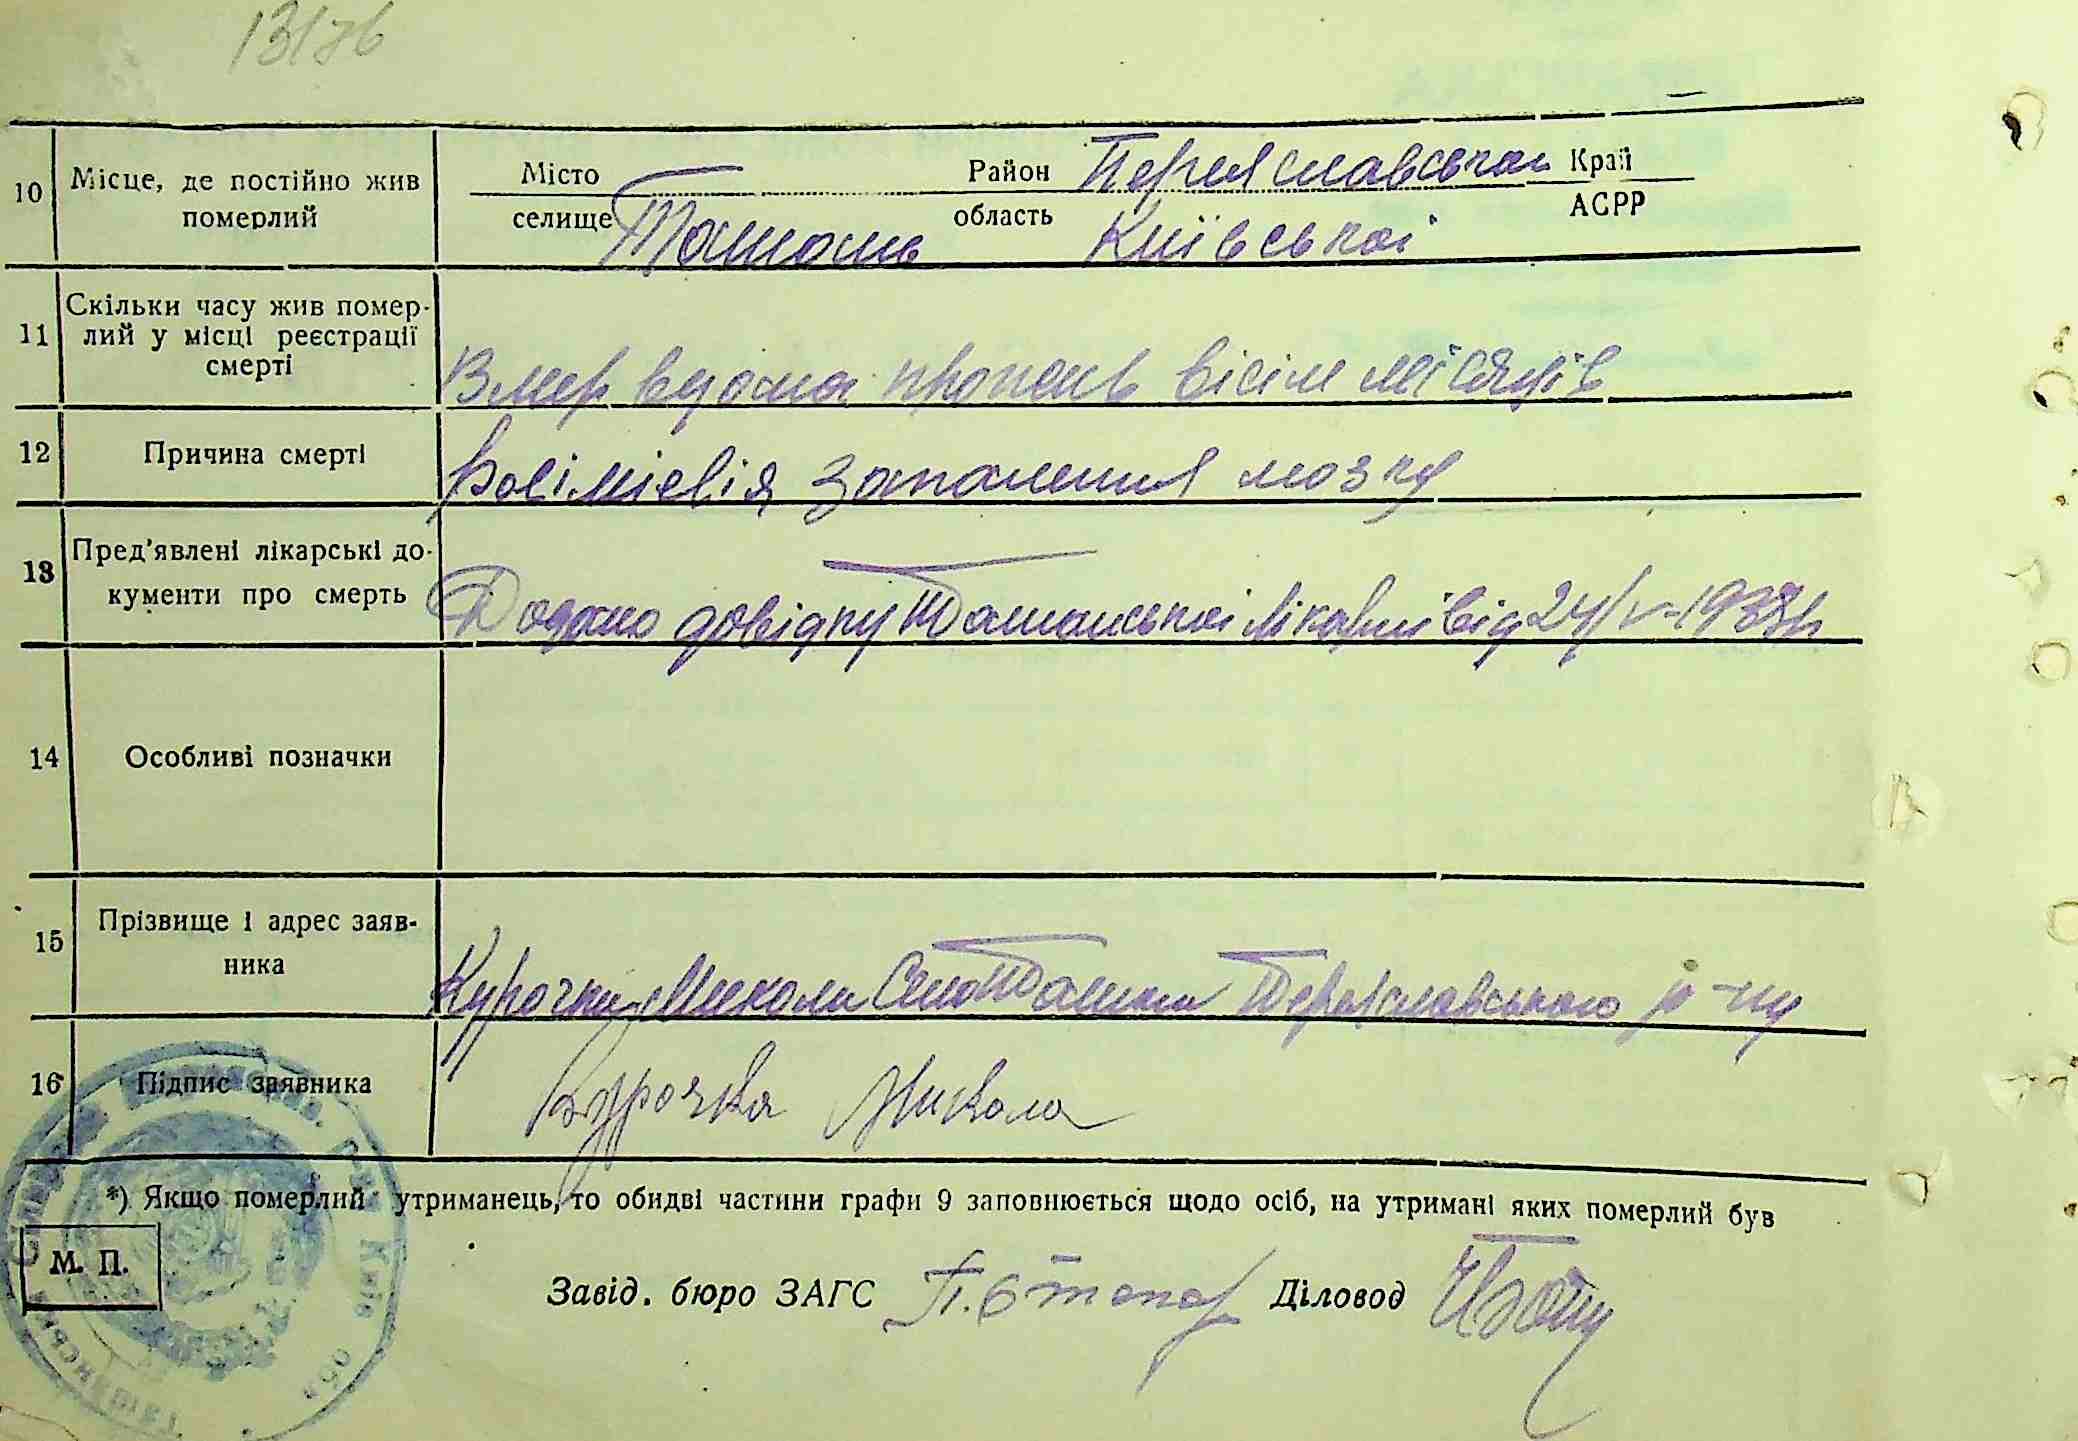 13176
10 Місце, де постійно жив Місто Район Переяславської Край
померлий селище Ташань область Київської АСРР
11 Скільки часу жив помер-
лий у місці реєстрації
смерті
Вмер вдома прожив вісім місяців
12 Причина смерті запалення мозку
13 Пред'явлені лікарські до-
кументи про смерть
Додано довідку Ташанської лікарні від 24/V-1937р
14 Особливі позначки
15 Прізвище і адрес заяв-
ника
Курочка Микола Село Ташань Переяславського р-ну
16 Підпис заявника Курочка Микола
*) Якщо померлий утриманець, то обидві частини графи 9 заповнюється щодо осіб, на утримані яких померлий був
М. П.
Завід. бюро ЗАГС Діловод